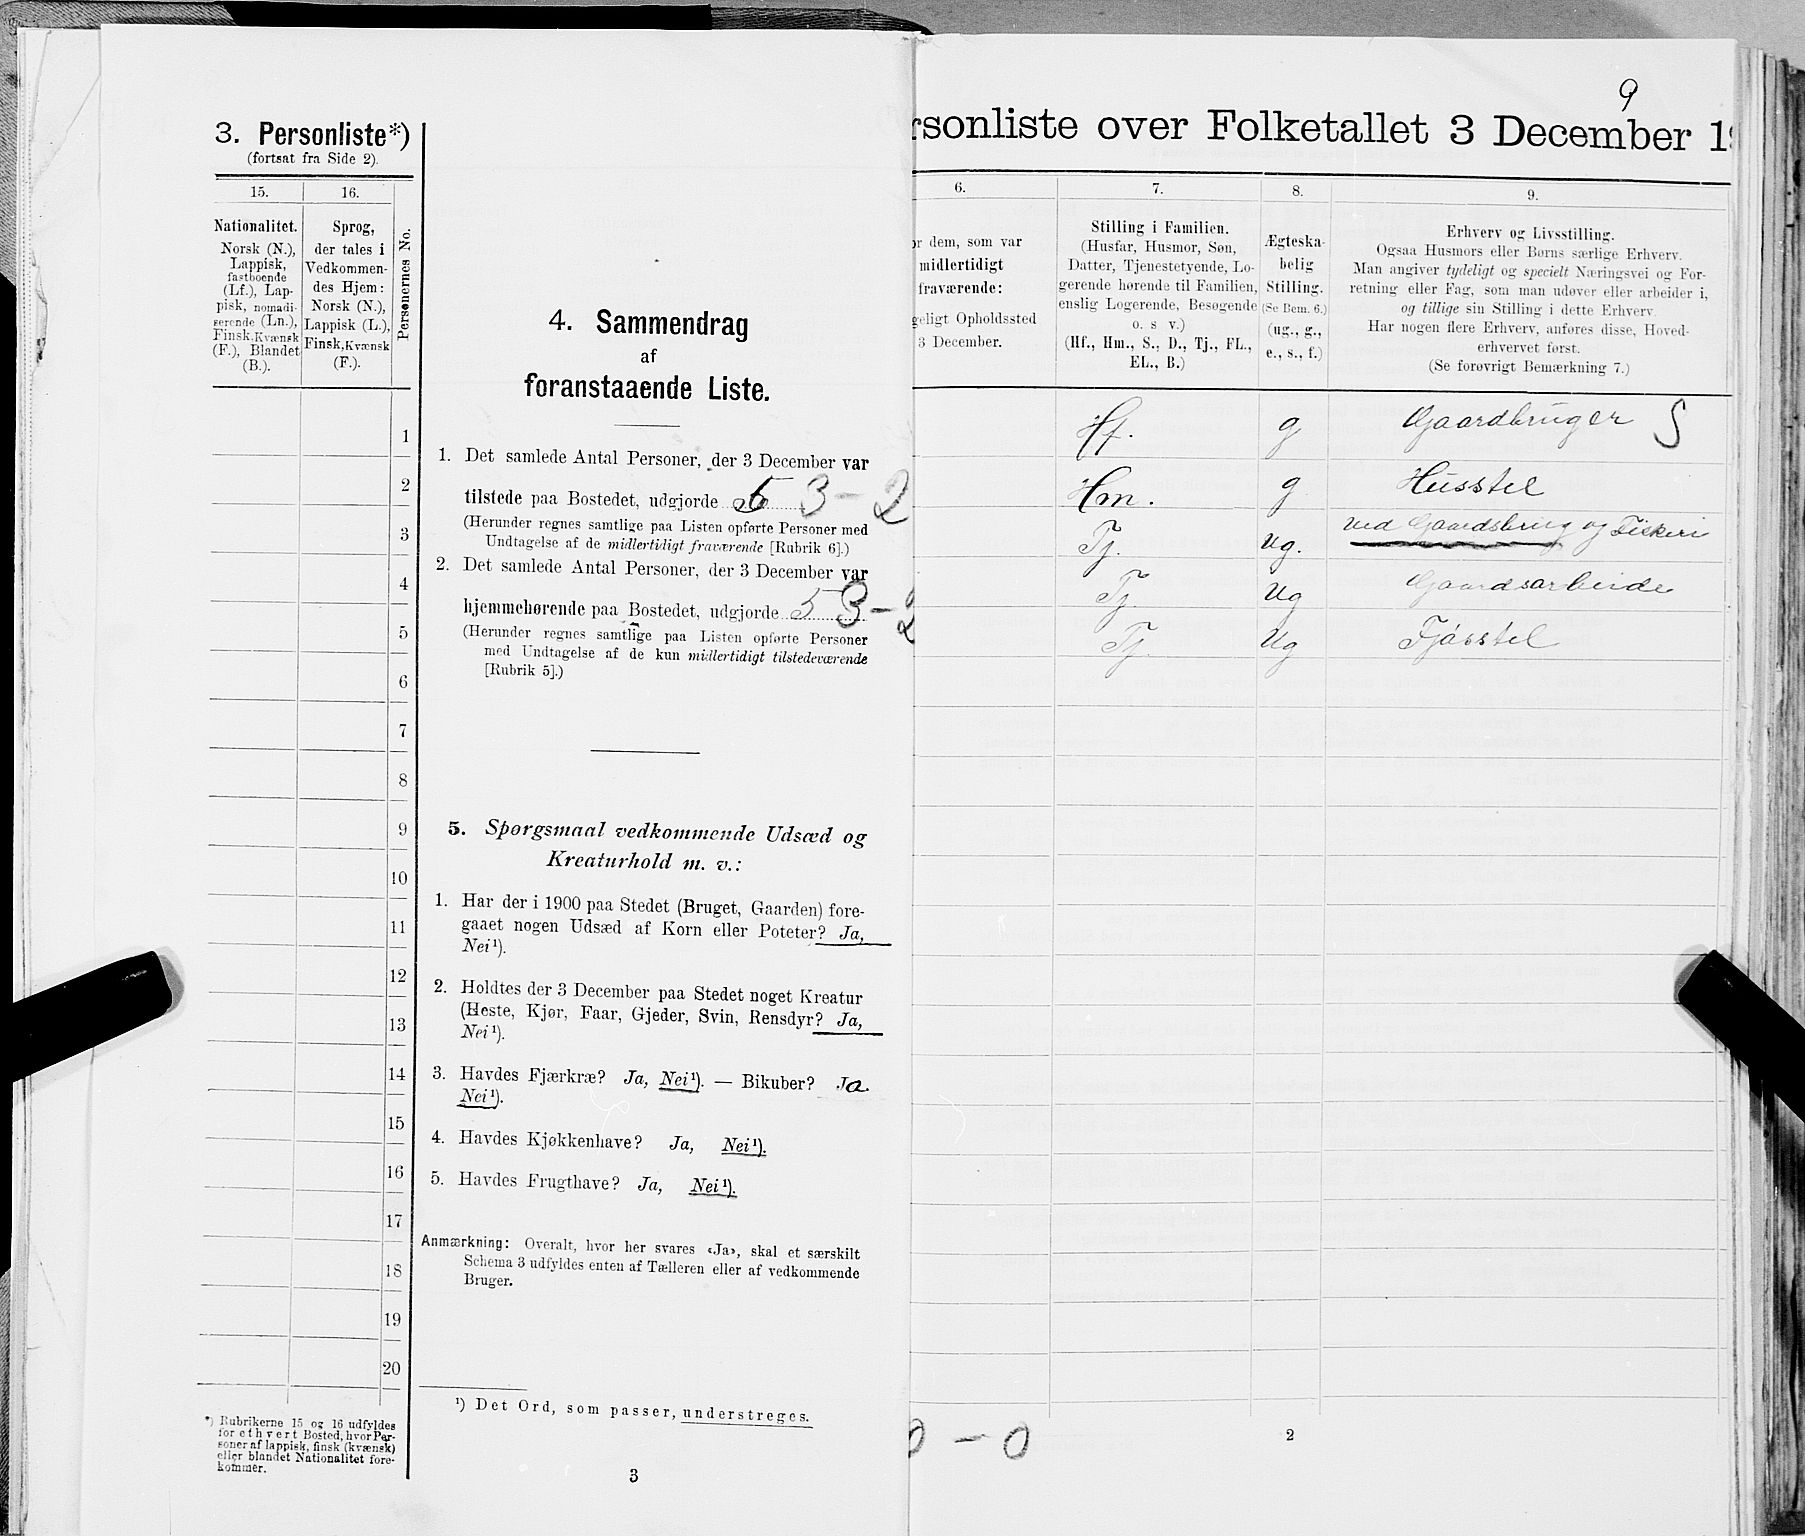 3. Personliste*)
(fortsat fra Side 2).
15.
16.
Personernes No.
Nationalitet.
Norsk (N.),
Lappisk,
fastboende
(Lf.), Lap-
pisk, nomadi-
serende (Ln.),
Finsk, Kvænsk
(F.), Blandet
(B.).
Sprog,
der tales i
Vedkommen-
des Hjem:
Norsk (N.),
Lappisk (L.),
Finsk, Kvænsk
(F.).
1
2
3
4
5
6
7
8
9
10
11
12
13
14
15
16
17
18
19
20
*) Rubrikerne 15 og 16 udfyldes
for ethvert Bosted, hvor Per-
soner af lappisk, finsk (kvænsk)
eller blandet Nationalitet fore-
kommer.
4. Sammendrag
af
foranstaaende Liste.
1. Det samlede Antal Personer, der 3 December var
tilstede paa Bostedet, udgjorde 5 3-2
(Herunder regnes samtlige paa Listen opførte Personer med
Undtagelse af de midlertidigt fraværende [Rubrik 6].)
2. Det samlede Antal Personer, der 3 December var
hjemmehørende paa Bostedet, udgjorde 5 3-2
(Herunder regnes samtlige paa Listen opførte Personer
med Undtagelse af de kun midlertidigt tilstedeværende
[Rubrik 5].)
5. Spørgsmaal vedkommende Udsæd og
Kreaturhold m. v.:
1. Har der i 1900 paa Stedet (Bruget, Gaarden) fore-
gaaet nogen Udsæd af Korn eller Poteter? Ja,
Nei¹).
2. Holdtes der 3 December paa Stedet noget Kreatur
(Heste, Kjør, Faar, Gjeder, Svin, Rensdyr? Ja,
Nei¹).
3. Havdes Fjærkræ? Ja, Nei¹). — Bikuber? Ja
Nei¹).
4. Havdes Kjøkkenhave? Ja, Nei¹).
5. Havdes Frugthave? Ja, Nei¹).
Anmærkning: Overalt, hvor her svares «Ja», skal et særskilt
Schema 3 udfyldes enten af Tælleren eller af vedkommende
Bruger.
¹) Det Ord, som passer, understreges.
3
9
rsonliste over Folketallet 3 December 19
6.
7.
8.
9.
or dem, som var
midlertidigt
fraværende:
geligt Opholdssted
3 December.
Stilling i Familien.
(Husfar, Husmor, Søn,
Datter, Tjenestetyende, Lo-
gerende hørende til Familien,
enslig Logerende, Besøgende
o. s v.)
(Hf., Hm., S., D., Tj., FL.,
EL., B.)
Ægteska-
belig
Stilling.
(Se Bem. 6.)
(ug., g.,
e., s., f.)
Erhverv og Livsstilling.
Ogsaa Husmors eller Børns særlige Erhverv.
Man angiver tydeligt og specielt Næringsvei og For-
retning eller Fag, som man udøver eller arbeider i,
og tillige sin Stilling i dette Erhverv.
Har nogen flere Erhverv, anføres disse, Hoved-
erhvervet først.
(Se forøvrigt Bemærkning 7.)
Hf. g Gaardbruger S
Hm. g Husstel
Tj. ug. ved Gaardsbrug og Fiskeri
Tj. ug Gaardsarbeide
Tj. ug Fjøsstel
0 - 0
2